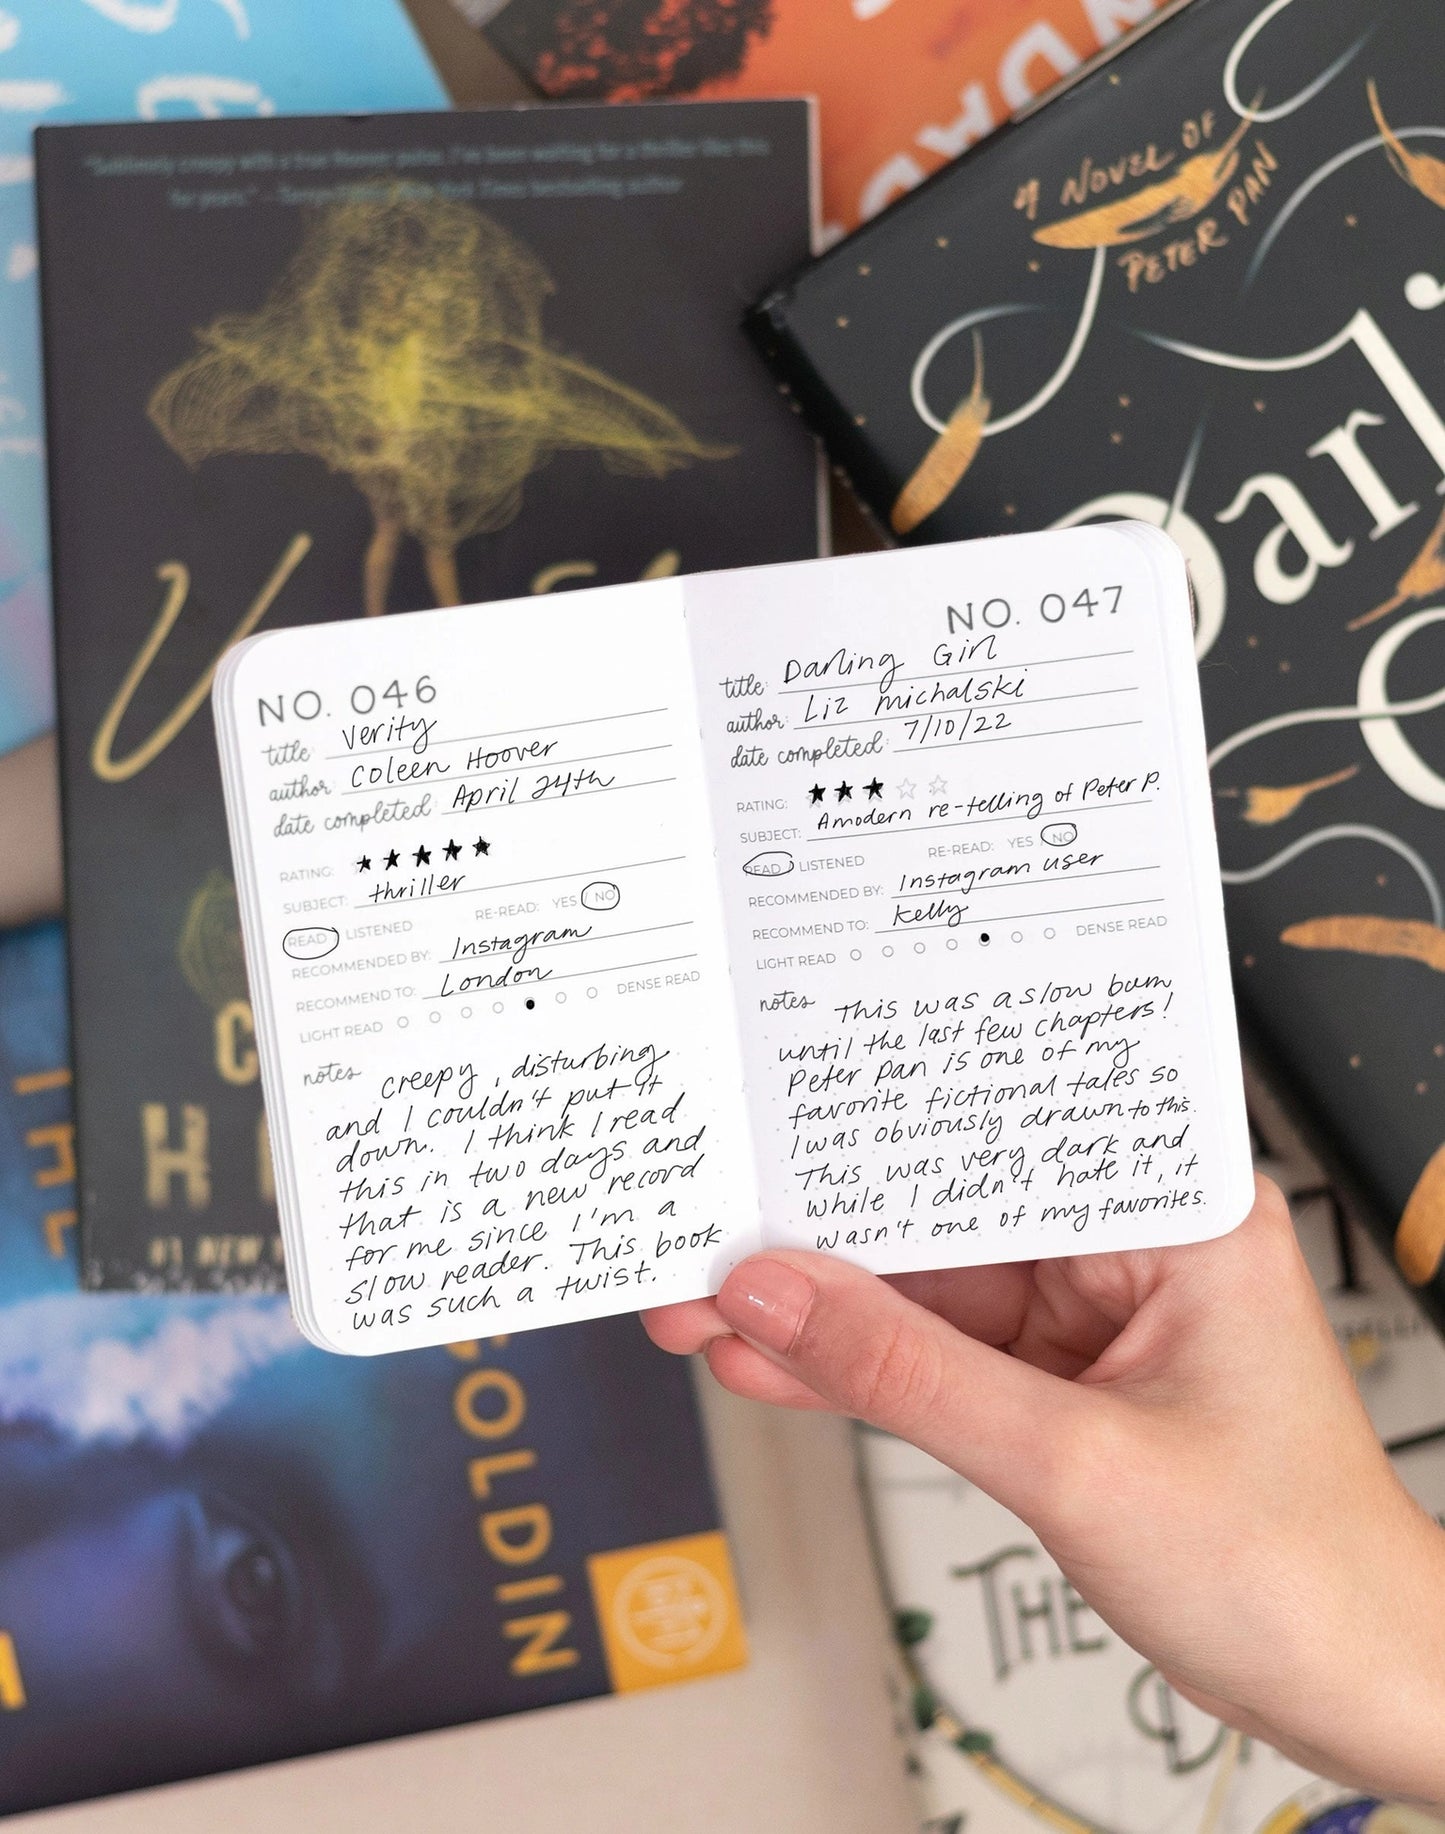 "Suddenly creepy with a true horror pulse. I've been waiting for a thriller like this
for years." —
A NOVEL OF
PETER PAN
Darli
NO. 046
title: Verity
author: Coleen Hoover
date completed: April 24th
RATING: ★★★★★
SUBJECT: thriller
READ / LISTENED RE-READ: YES / NO
RECOMMENDED BY: Instagram
RECOMMEND TO: London
LIGHT READ ○ ○ ○ ○ ● ○ ○ DENSE READ
notes creepy, disturbing
and I couldn't put it
down. I think I read
this in two days and
that is a new record
for me since I'm a
slow reader. This book
was such a twist.
NO. 047
title: Darling Girl
author: Liz michalski
date completed: 7/10/22
RATING: ★★★☆☆
SUBJECT: A modern re-telling of Peter P.
READ / LISTENED RE-READ: YES / NO
RECOMMENDED BY: Instagram user
RECOMMEND TO: Kelly
LIGHT READ ○ ○ ○ ○ ● ○ ○ DENSE READ
notes This was a slow burn
until the last few chapters!
Peter Pan is one of my
favorite fictional tales so
I was obviously drawn to this.
This was very dark and
while I didn't hate it, it
wasn't one of my favorites.
#1 NEW
GOLDIN
THE